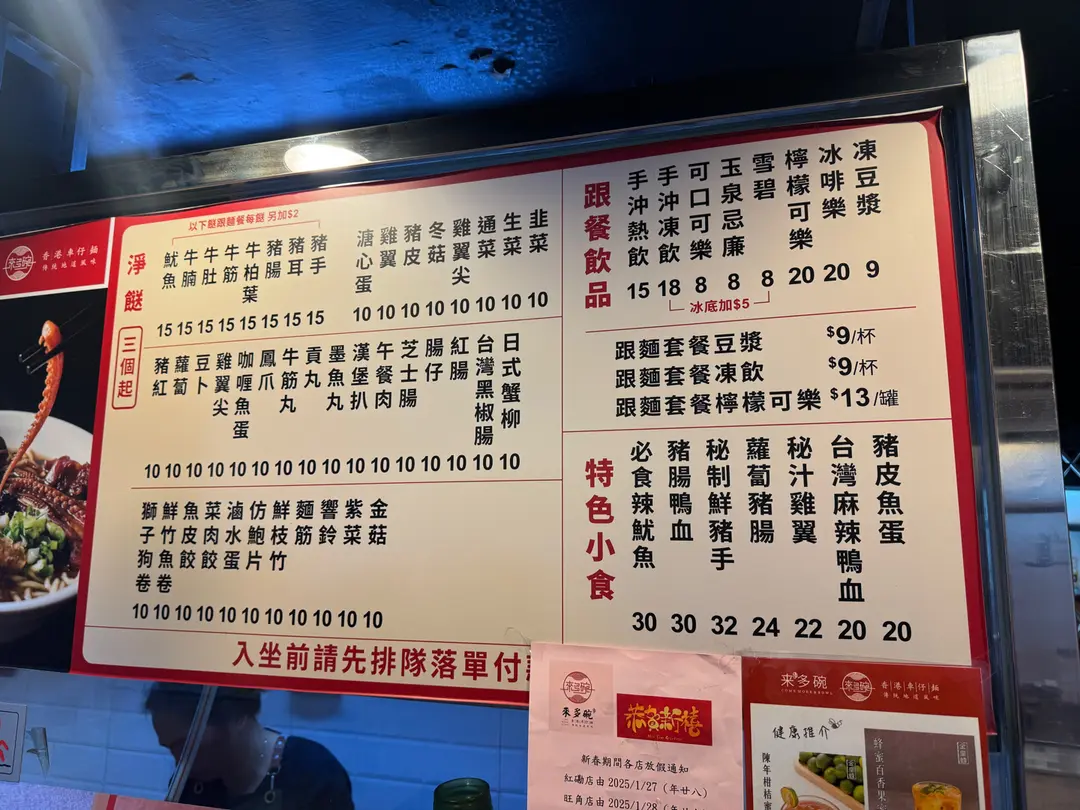 來多碗
香港車仔麵
傳統地道風味
淨餸
三個起
以下餸跟麵餐每餸 另加$2
魷魚 牛腩 牛肚 牛筋 牛柏葉 豬腸 豬耳 豬手
15 15 15 15 15 15 15 15
溏心蛋 雞翼 豬皮 冬菇 雞翼尖 通菜 生菜 韭菜
10 10 10 10 10 10 10 10
豬紅 蘿蔔 豆卜 雞翼尖 咖喱魚蛋 鳳爪 牛筋丸 貢丸 墨魚丸 漢堡扒 午餐肉 芝士腸 腸仔 紅腸 台灣黑椒腸 日式蟹柳
10 10 10 10 10 10 10 10 10 10 10 10 10 10 10 10
獅子狗卷 鮮竹魚卷 魚皮餃 菜肉餃 滷水蛋 仿鮑片 鮮枝竹 麵筋 響鈴 紫菜 金菇
10 10 10 10 10 10 10 10 10 10 10
入坐前請先排隊落單付
跟餐飲品
手沖熱飲 手沖凍飲 可口可樂 玉泉忌廉 雪碧 檸檬可樂 冰啡樂 凍豆漿
15 18 8 8 8 20 20 9
冰底加$5
跟麵套餐豆漿 $9/杯
跟麵套餐凍飲 $9/杯
跟麵套餐檸檬可樂 $13/罐
特色小食
必食辣魷魚 豬腸鴨血 秘制鮮豬手 蘿蔔豬腸 秘汁雞翼 台灣麻辣鴨血 豬皮魚蛋
30 30 32 24 22 20 20
來多碗
來多碗
恭賀新禧
新春期間各店放假通知
紅磡店由 2025/1/27 (年廿八)
旺角店由 2025/1/28
來多碗
來多碗
香港車仔麵
傳統地道風味
健康推介
陳年柑桔蜜
蜂蜜百香果